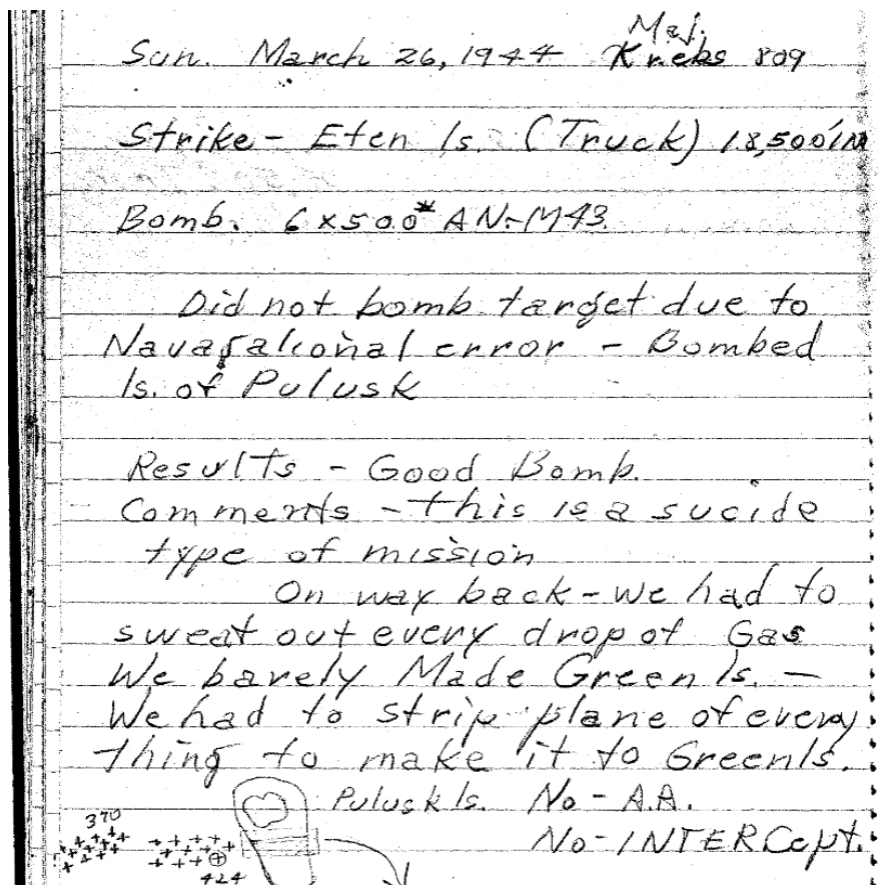 Maj.
Sun. March 26, 1944 Krebs 809
Strike - Eten Is. (Truck) 18,500'
Bomb. 6x500# AN-M43
Did not bomb target due to
Navagational error - Bombed
Is. of Pulusk
Results - Good Bomb.
Comments - this is a sucide
type of mission
On way back - we had to
sweat out every drop of Gas
We barely Made Green Is. -
We had to strip plane of every
thing to make it to Green Is.
Pulusk Is. No - A.A.
370
No - INTERCept.
424